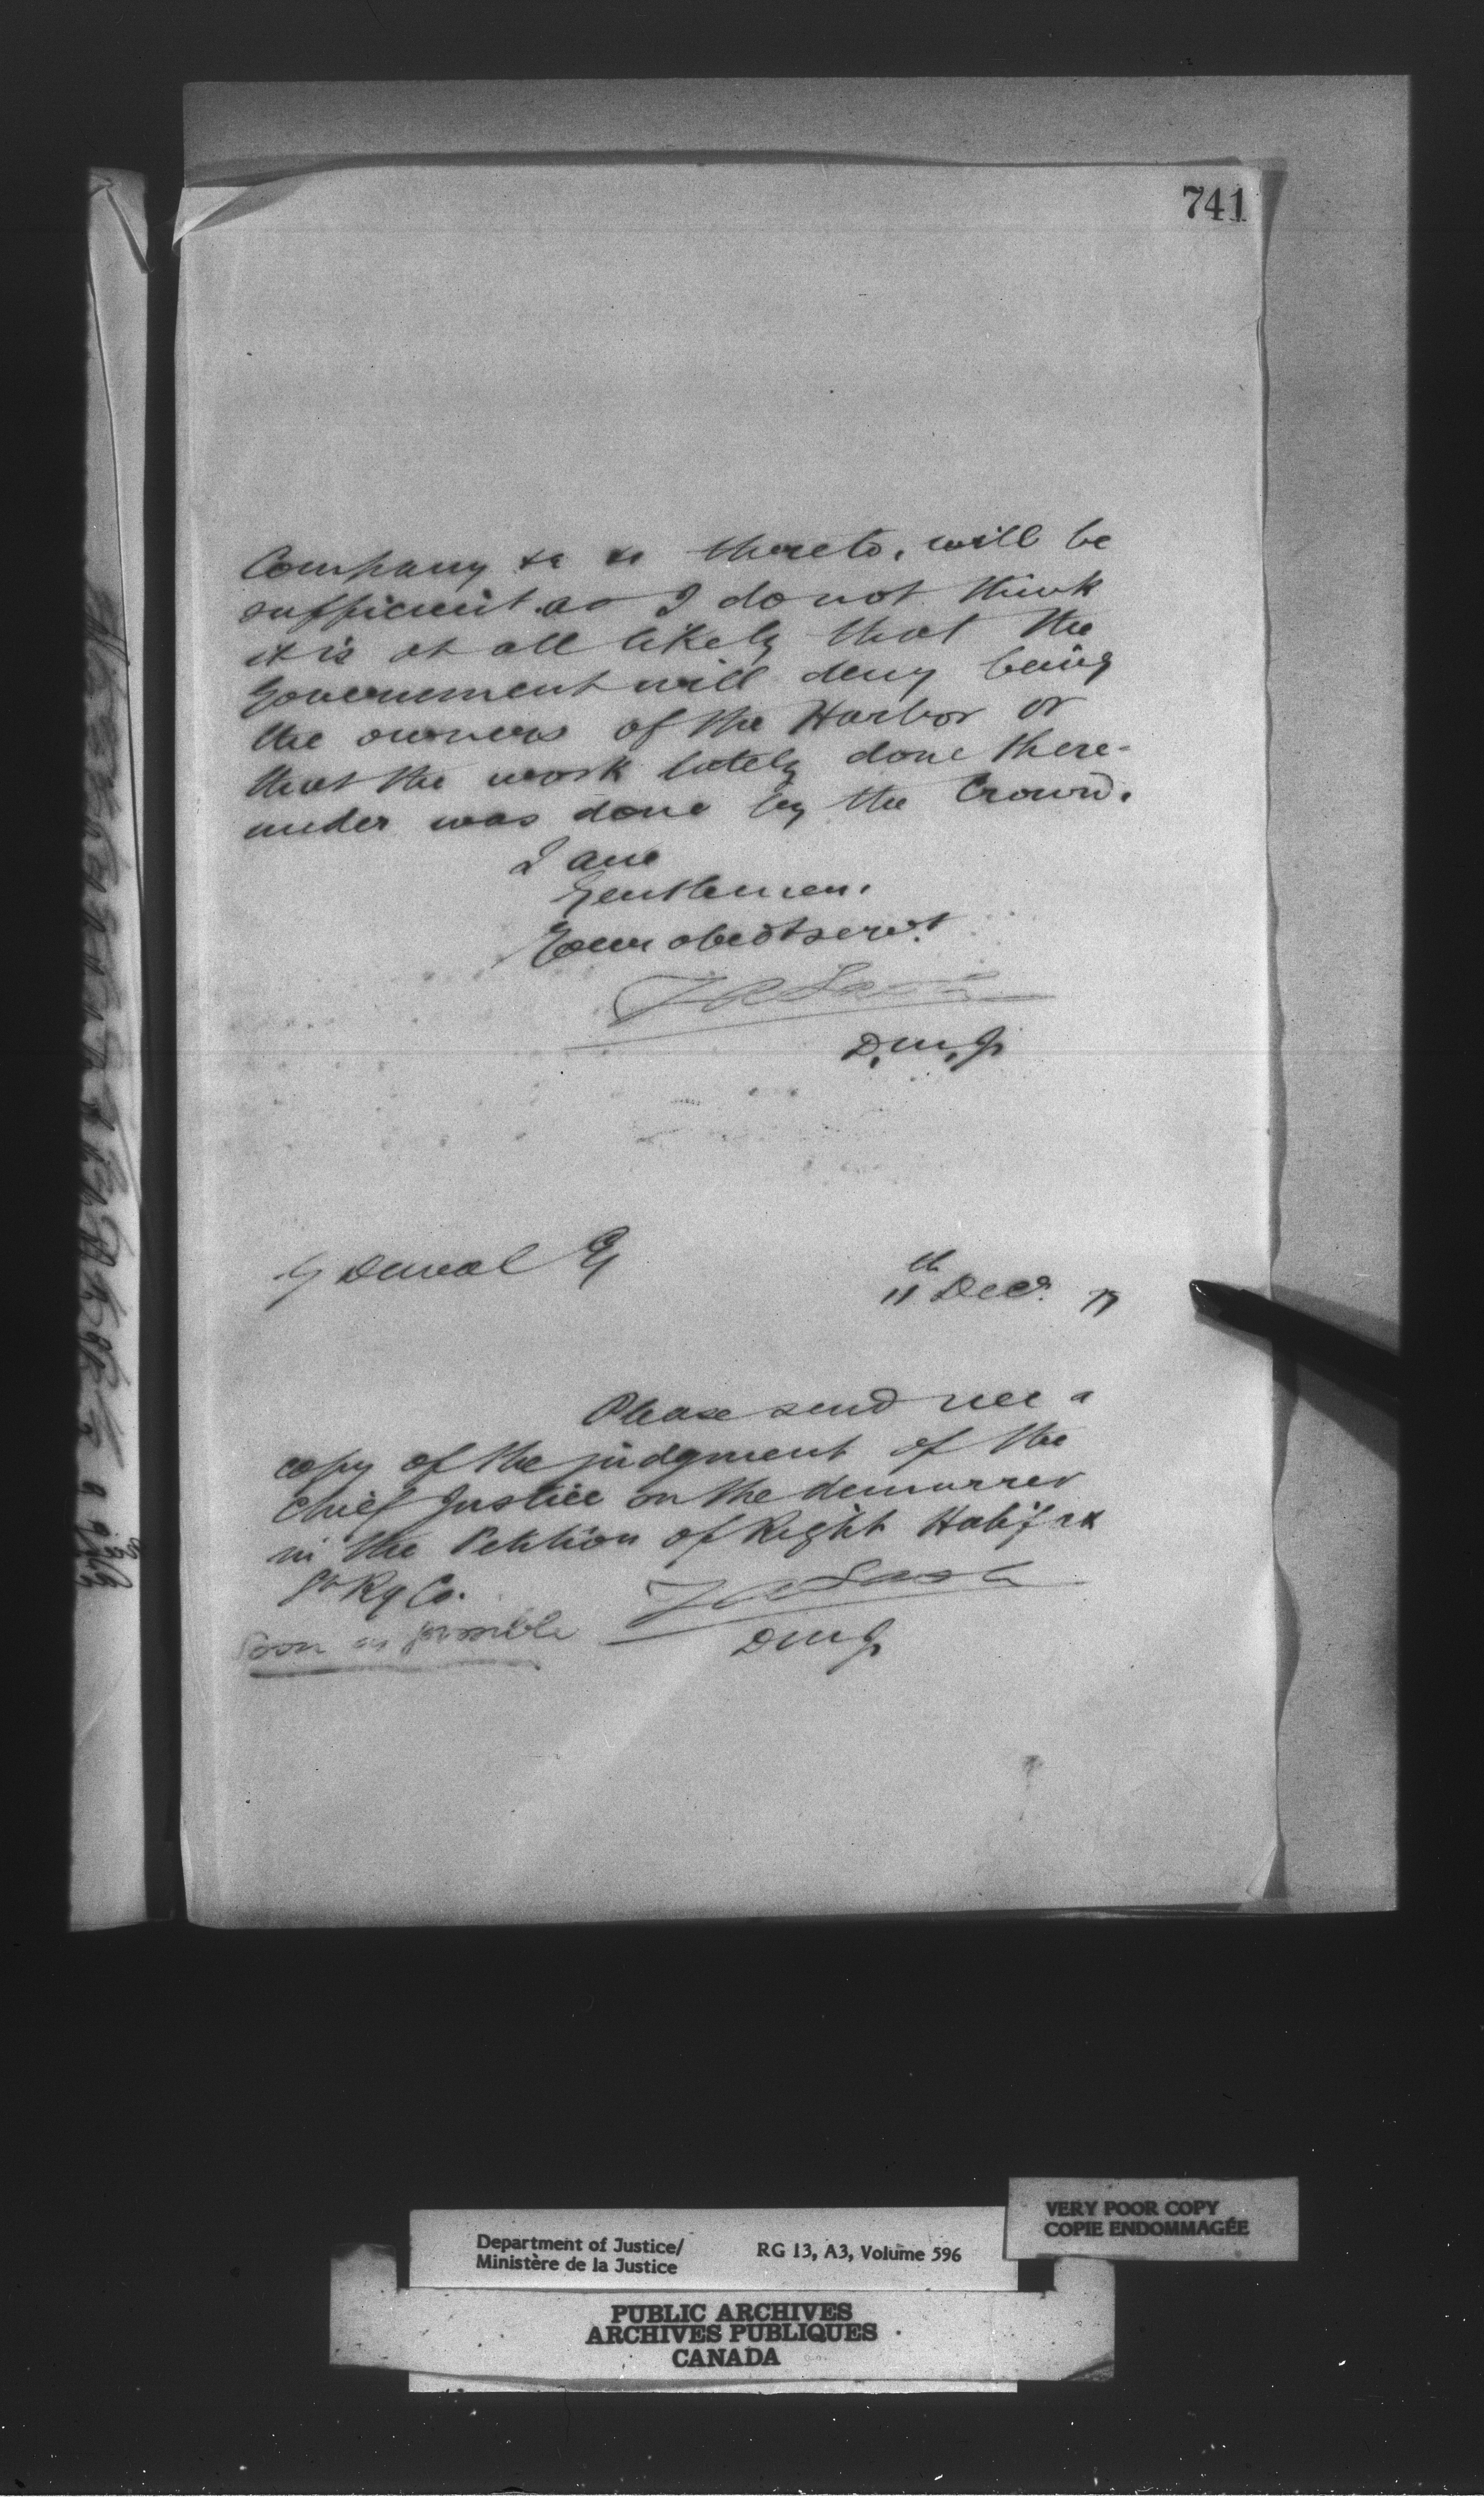 741
Company &c &c thereto, will be
sufficient as I do not think
it is at all likely that the
Government will deny being
the owners of the Harbor or
that the work lately done there-
under was done by the Crown.
I am
Gentlemen.
Your obedt servt
Z A Lash
D. M. J.
G Duval Esq
11th Decr. 77
Please send me a
copy of the judgment of the
Chief Justice on the demurrer
in the Petition of Right Halifax
St Ry Co.
Z A Lash
D M J
Soon as possible
VERY POOR COPY
COPIE ENDOMMAGÉE
Department of Justice/
Ministère de la Justice
RG 13, A3, Volume 596
PUBLIC ARCHIVES
ARCHIVES PUBLIQUES
CANADA